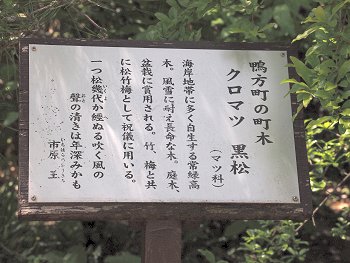 鴨方町の町木
クロマツ 黒松
(マツ科)
海岸地帯に多く自生する常緑高
木。風雪に耐え長命な木。庭木、
盆栽に賞用される。竹、梅と共
に松竹梅として祝儀に用いる。
一つ松幾代か経ぬる吹く風の
声の清きは年深みかも
市原 王